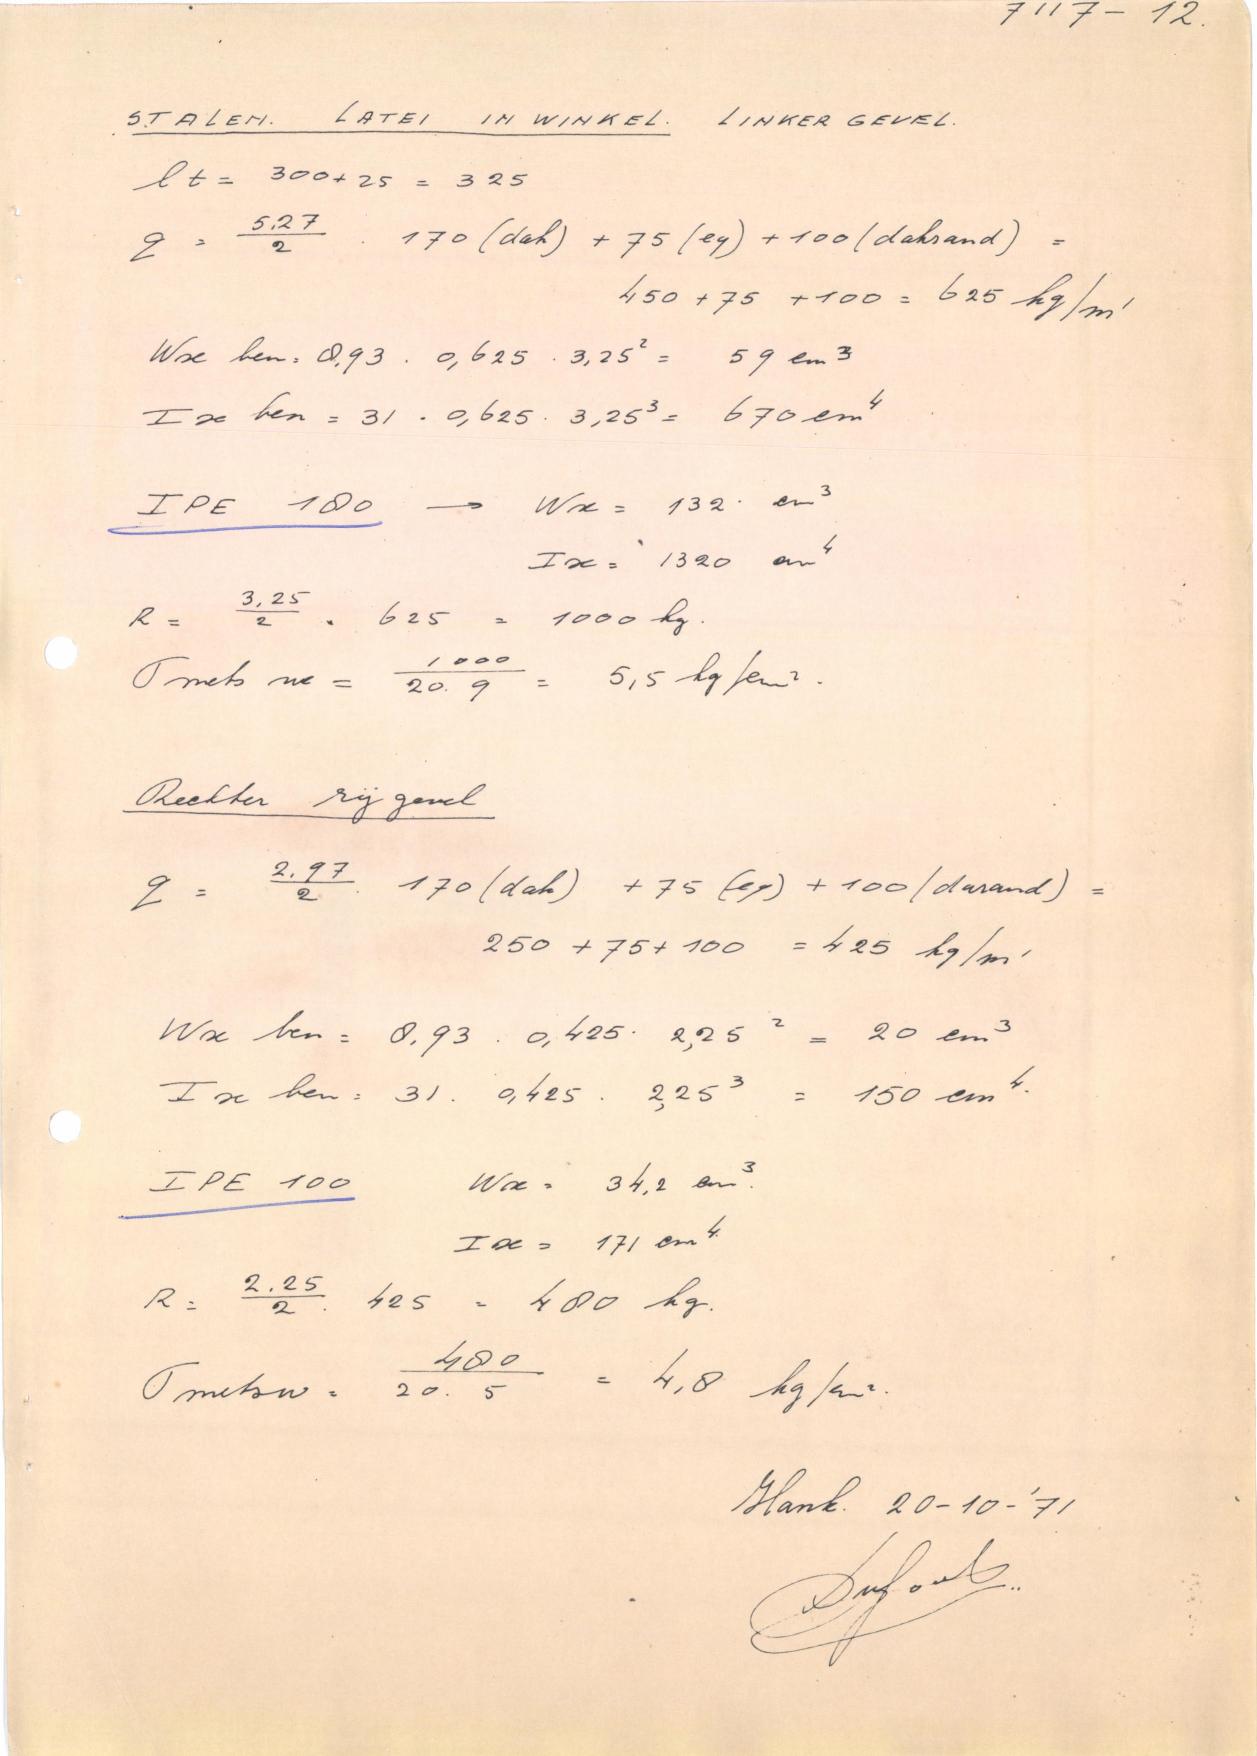 7117 - 12.
STALEN. LATEI IN WINKEL. LINKER GEVEL.
lt = 300+25 = 325
q = 5,27/2 . 170 (dak) + 75 (eg) + 100 (dakrand) =
450 + 75 + 100 = 625 kg/m'
Wx ben = 8,93 . 0,625 . 3,25² = 59 cm³
Ix ben = 31 . 0,625 . 3,25³ = 670 cm⁴
IPE 180 → Wx = 132 cm³
Ix = 1320 cm⁴
R = 3,25/2 . 625 = 1000 kg.
σ metsw = 1000/20. 9 = 5,5 kg/cm².
Rechter zijgevel
q = 2.97/2 . 170 (dak) + 75 (eg) + 100 (darand) =
250 + 75 + 100 = 425 kg/m'
Wx ben = 8,93 . 0,425 . 2,25² = 20 cm³
Ix ben = 31 . 0,425 . 2,25³ = 150 cm⁴.
IPE 100 Wx = 34,2 cm³.
Ix = 171 cm⁴
R = 2.25/2 . 425 = 480 kg.
σ metsw = 480/20. 5 = 4,8 kg/cm².
20-10-'71